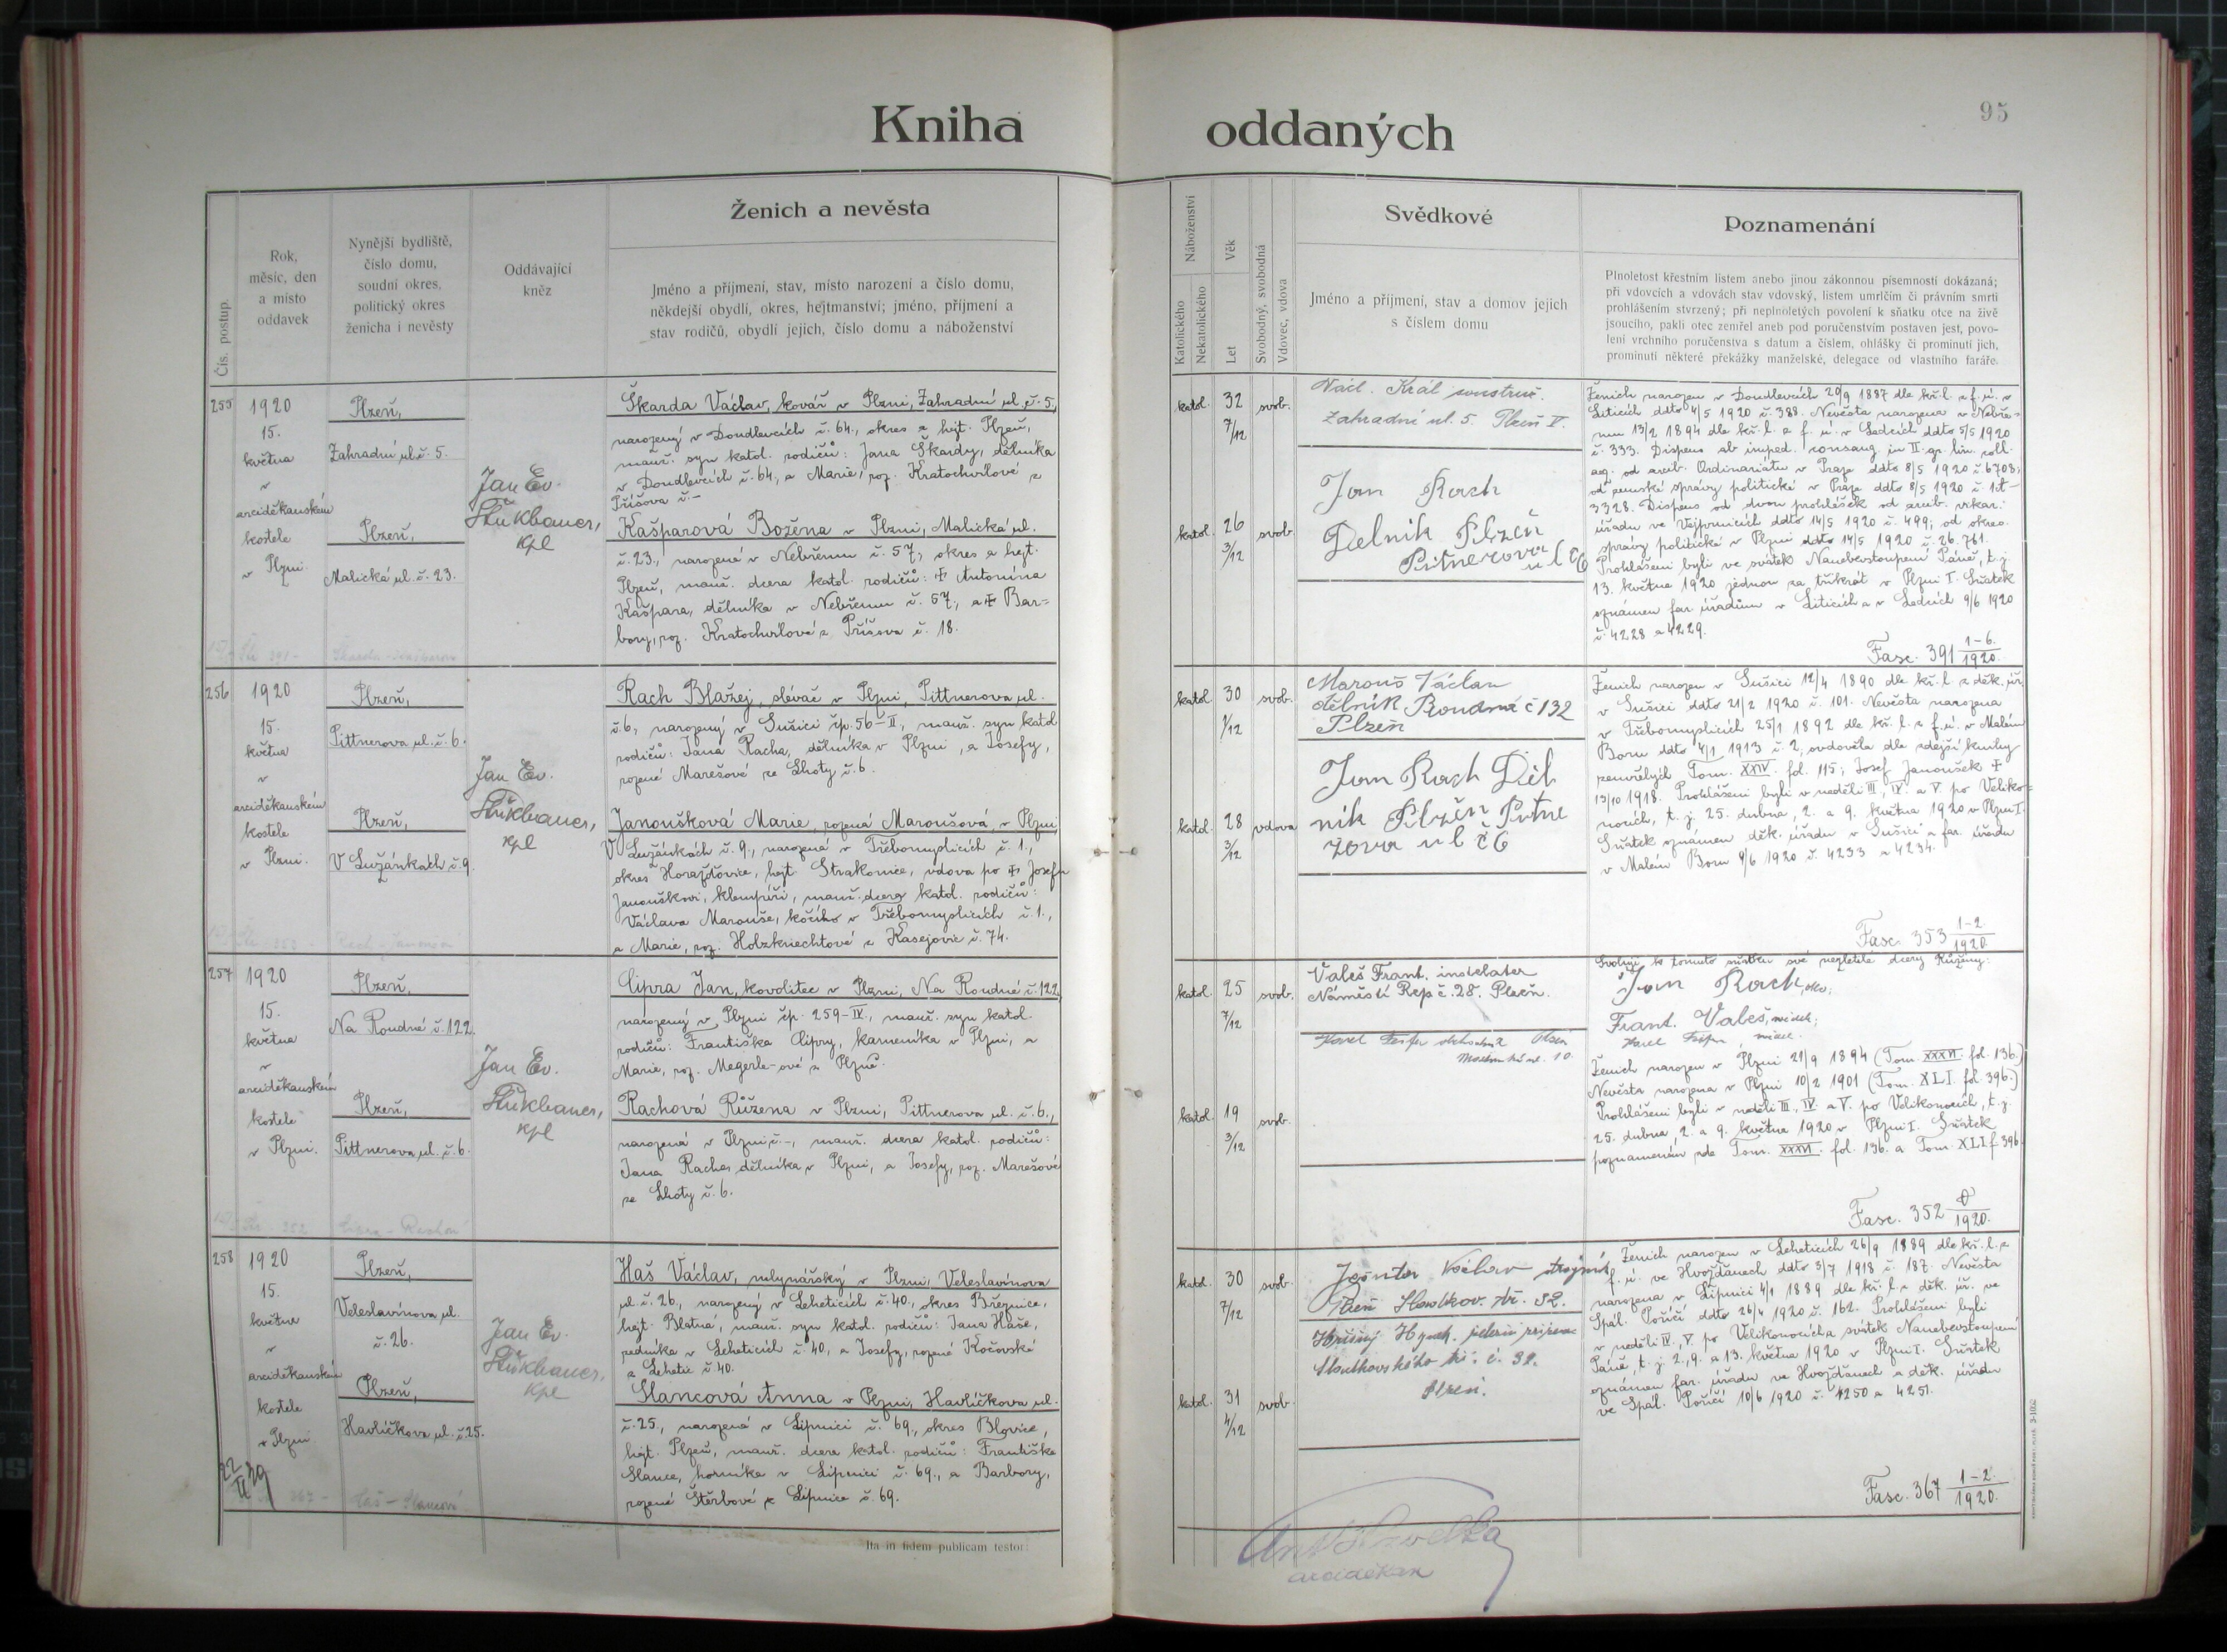 Kniha
oddaných
95
Čís. postup.
Rok,
měsíc, den
a místo
oddavek
Nynější bydliště,
číslo domu,
soudní okres,
politický okres
ženicha i nevěsty
Oddávající
kněz
Ženich a nevěsta
Jméno a příjmení, stav, místo narození a číslo domu,
někdejší obydlí, okres, hejtmanství; jméno, příjmení a
stav rodičů, obydlí jejich, číslo domu a náboženství
Náboženství
Katolického
Nekatolického
Věk
Let
Svobodný, svobodná
Vdovec, vdova
Svědkové
Jméno a příjmení, stav a domov jejich
s číslem domu
Poznamenání
Plnoletost křestním listem anebo jinou zákonnou písemností dokázaná;
při vdovcích a vdovách stav vdovský, listem umrlčím či právním smrti
prohlášením stvrzený; při neplnoletých povolení k sňatku otce na živě
jsoucího, pakli otec zemřel aneb pod poručenstvím postaven jest, povo-
lení vrchního poručenstva s datum a číslem, ohlášky či prominutí jich,
prominutí některé překážky manželské, delegace od vlastního faráře.
255
1920
15.
května
v
arciděkanském
kostele
v Plzni
Plzeň,
Zahradní ul. č. 5.
Plzeň,
Malická ul. č. 23.
Jan Ev.
kpl
Škarda Václav, kovář v Plzni, Zahradní ul. č. 5,
narozený v Doudlevcích č. 64., okres a hejt. Plzeň,
manž. syn katol. rodičů: Jana Škardy, dělníka
v Doudlevcích č. 64., a Marie, roz. Kratochvílové z
Příšova č. –
Kašparová Božena v Plzni, Malická ul.
č. 23., narozená v Nebřemu č. 57, okres a hejt.
Plzeň, manž. dcera katol. rodičů: ✝ Antonína
Kašpara, dělníka v Nebřemu č. 57., a ✝ Bar=
bory, roz. Kratochvílové z Příšova č. 18.
katol. 32 7/12 svob.
katol. 26 3/12 svob.
Václ. Král
Zahradní ul. 5. Plzeň V.
Jan Rach
Delnik Plzeň
Ženich narozen v Doudlevcích 20/9 1887 dle kř. l. z f. ú. v
Liticích ddto 4/5 1920 č. 388. Nevěsta narozena v Nebře-
mu 13/2 1894 dle kř. l. z f. ú. v Ledcích ddto 5/5 1920
č. 333. Dispens ab imped. consang. in II. gr. lin. coll.
aeq. od arcib. Ordinariátu v Praze ddto 8/5 1920 č. 6703;
od zemské správy politické v Praze ddto 8/5 1920 č.
3328. Dispens od dvou prohlášek od arcib. vikar.
úřadu ve Vejprnicích ddto 14/5 1920 č. 499; od okres.
správy politické v Plzni ddto 14/5 1920 č. 26.761.
Prohlášeni byli ve svátek Nanebevstoupení Páně, t. j.
13. května 1920 jednou za třikrát v Plzni I. Sňatek
oznámen far. úřadům v Liticích a v Ledcích 9/6 1920
č. 4228 a 4229.
Fasc. 391 1–6./1920.
256
1920
15.
května
v
arciděkanském
kostele
v Plzni.
Plzeň,
Pittnerova ul. č. 6.
Plzeň,
V Lužánkách č. 9.
Jan Ev.
kpl
Rach Blažej, slévač v Plzni, Pittnerova ul.
č. 6, narozený v Sušici čp. 56–II, manž. syn katol.
rodičů: Jana Racha, dělníka v Plzni, a Josefy,
rozené Marešové ze Lhoty č. 6.
Janoušková Marie, rozená Maroušová, v Plzni,
V Lužánkách č. 9., narozená v Třebomyslicích č. 1.,
okres Horažďovice, hejt. Strakonice, vdova po ✝ Josefu
Janouškovi, klempíři, manž. dcera katol. rodičů:
Václava Marouše, kočího v Třebomyslicích č. 1.,
a Marie, roz. Holzknechtové z Kasejovic č. 74.
katol. 30 1/12 svob.
katol. 28 3/12 vdova
Marouš Václav
dělník Roudná č 132
Plzeň
Jan Rach Děl
nik Plzeň Pitne
rova ul č 6
Ženich narozen v Sušici 12/4 1890 dle kř. l. z děk. úř.
v Sušici ddto 21/2 1920 č. 101. Nevěsta narozena
v Třebomyslicích 25/1 1892 dle kř. l. z f. ú. v Malém
Boru ddto 4/1 1913 č. 2, ovdověla dle zdejší knihy
zemřelých Tom. XXIV. fol. 115; Josef Janoušek ✝
13/10 1918. Prohlášeni byli v neděli III., IV. a V. po Veliko-
nocích, t. j. 25. dubna, 2. a 9. května 1920 v Plzni I.
Sňatek oznámen děk. úřadu v Sušici a far. úřadu
v Malém Boru 9/6 1920 č. 4233 a 4234.
Fasc. 353 1–2./1920.
257
1920
15.
května
v
arciděkanském
kostele
v Plzni.
Plzeň,
Na Roudné č. 122.
Plzeň,
Pittnerova ul. č. 6.
Jan Ev.
kpl
Cipra Jan, kovolitec v Plzni, Na Roudné č. 122,
narozený v Plzni čp. 259–IV., manž. syn katol.
rodičů: Františka Cipry, kameníka v Plzni, a
Marie, roz. Megerle-ové z Plzně.
Rachová Růžena v Plzni, Pittnerova ul. č. 6.,
narozená v Plzni č. –, manž. dcera katol. rodičů:
Jana Racha, dělníka v Plzni, a Josefy, roz. Marešové
ze Lhoty č. 6.
katol. 25 7/12 svob.
katol. 19 3/12 svob.
Valeš Frant. instelater
Náměstí Rep č. 28. Plzeň.
Karel
10.
Svoluji k tomuto sňatku své nezletilé dcery Růženy:
Jan Rach, otec;
Frant. Valeš, svědek;
Karel svědek.
Ženich narozen v Plzni 21/9 1894 (Tom. XXXVI. fol. 136.)
Nevěsta narozena v Plzni 10/2 1901 (Tom. XLI. fol. 396.)
Prohlášeni byli v neděli III., IV. a V. po Velikonocích, t. j.
25. dubna, 2. a 9. května 1920 v Plzni I. Sňatek
poznamenán zde Tom. XXXVI. fol. 136. a Tom. XLI f. 396.
Fasc. 352 /1920.
258
1920
15.
května
v
arciděkanském
kostele
v Plzni
Plzeň,
Veleslavínova ul.
č. 26.
Plzeň,
Havlíčkova ul. č. 25.
Jan Ev.
kpl
Haš Václav, mlynářský v Plzni, Veleslavínova
ul. č. 26., narozený v Leheticích č. 40., okres Březnice,
hejt. Blatná, manž. syn katol. rodičů: Jana Haše,
zedníka v Leheticích č. 40, a Josefy, rozené Kočovské
z Lehetic č 40.
Slancová Anna v Plzni, Havlíčkova ul.
č. 25., narozená v Lipnici č. 69., okres Blovice,
hejt. Plzeň, manž. dcera katol. rodičů: Františka
Slance, horníka v Lipnici č. 69., a Barbory,
rozené Štěrbové z Lipnice č. 69.
katol. 30 7/12 svob.
katol. 31 4/12 svob.
Václav
tř. č. 32.
Plzeň.
Ženich narozen v Leheticích 26/9 1889 dle kř. l. z
f. ú. ve Hvožďanech ddto 3/7 1918 č. 187. Nevěsta
narozena v Lipnici 4/1 1889 dle kř. l. z děk. úř. ve
Spál. Poříčí ddto 26/4 1920 č. 162. Prohlášeni byli
v neděli IV., V. po Velikonocích a svátek Nanebevstoupení
Páně, t. j. 2., 9. a 13. května 1920 v Plzni I. Sňatek
oznámen far. úřadu ve Hvožďanech a děk. úřadu
ve Spál. Poříčí 10/6 1920 č. 4250 a 4251.
Fasc. 367 1–2./1920.
Ita in fidem publicam testor:
arciděkan